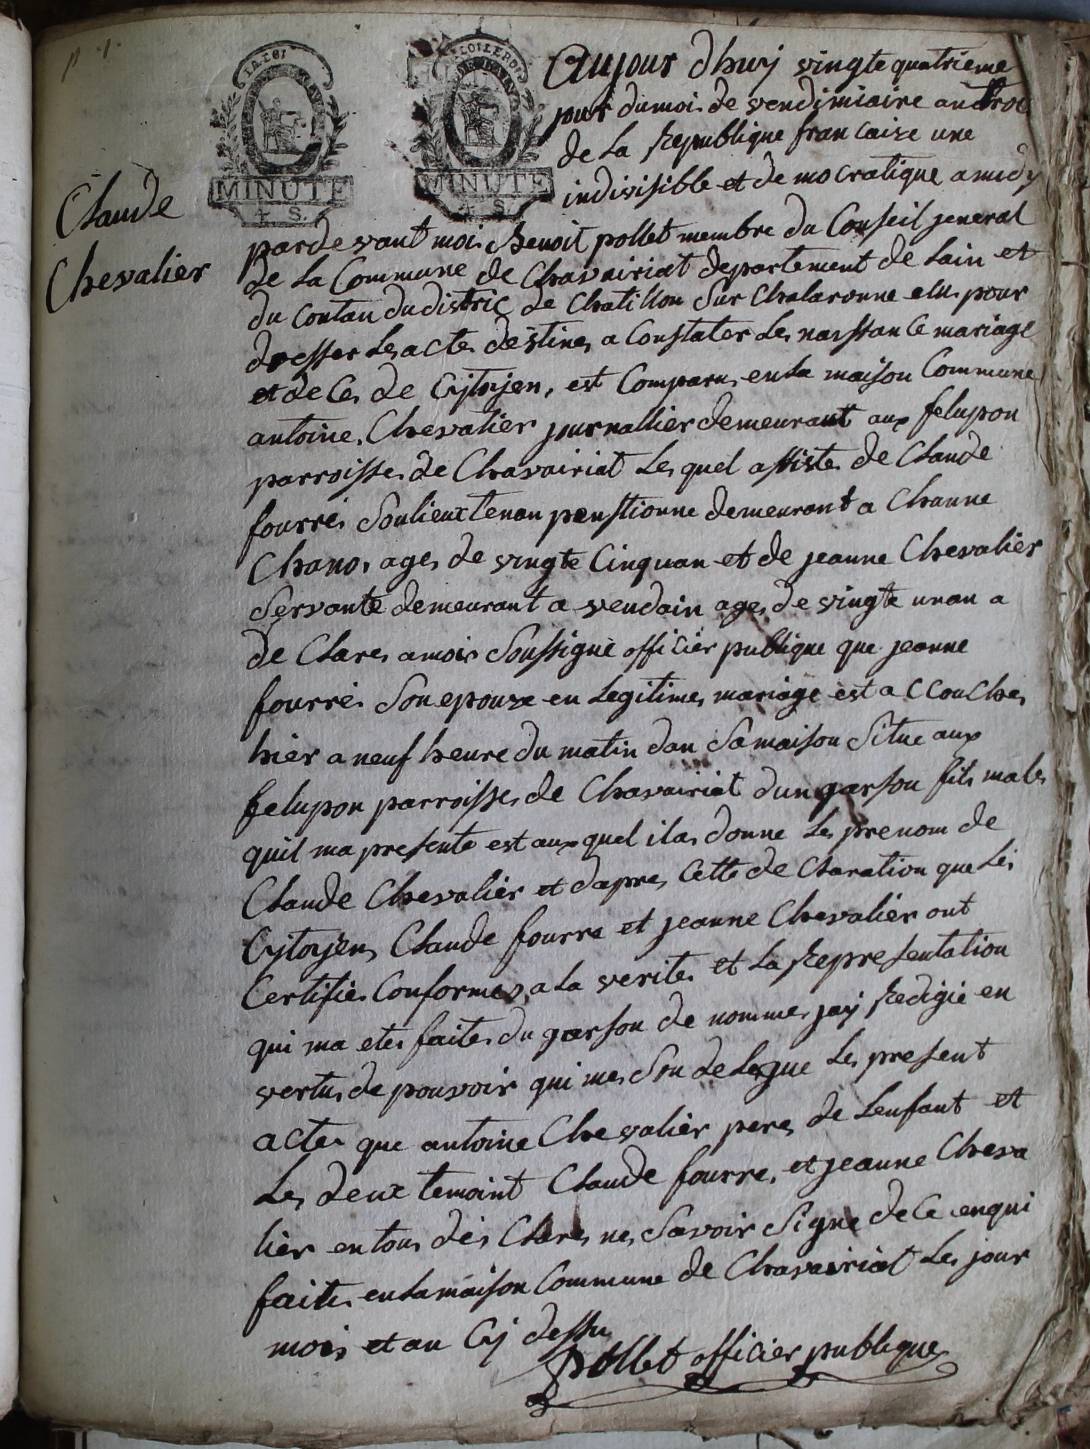 LA LOI
MINUTE
4 S.
LA LOI LE ROI
MINUTE
4 S.
Claude
Chevalier
Aujour dhuij vingte quatrieme
jour dumois de vendimiaire an trois
de La Republique francaise une
indivisible et de mocratique a midy
pardevant moi Benoit pollet membre du Conseil jeneral
de La Commune de Chavairiat departement de Lain et
du Contau du distric de Chatillon Sur Chalaronne elu pour
dresser Les acte destines a Constater Les naissance mariage
et de Ces de Cytoyen, est Comparu en La maison Commune
antoine Chevalier journallier demeurant aux felupon
parroisse de Chavairiat Lequel assiste de Claude
fourre Soulieuxtenan penstionne demeurant a Channe
Chano, age de vingte Cinquan et de jeanne Chevalier
Servante demeurant a vendain age de vingte unan a
de Clare a mois Soussigne officier publique que jeanne
fourre Son epouze en Legitime mariage est a CCouChe
hier a neuf heure du matin dan Samaison Situe aux
felupon parroisse de Chavairiat dun garson fils male
quil ma presente est auxquel ila donne Le prenom de
Claude Chevalier et dapre Cette de Claration que Lei
Cytoyen Claude fourre et jeanne Chevalier ont
Certifie Conforme a La verite et La Representation
qui ma ete faite du garson de nomme jaij Redigie en
vertu de pouvoir qui me Son delegue Le present
acte que antoine Chevalier pere de Lenfant et
Le deux temoint Claude fourre, et jeanne Cheva
lier entous dei Clare ne Savoir Signe de Ce enqui
faite en Lamaison Commune de Chavairiat Le jour
mois et an Cij dessu
Pollet officier publique